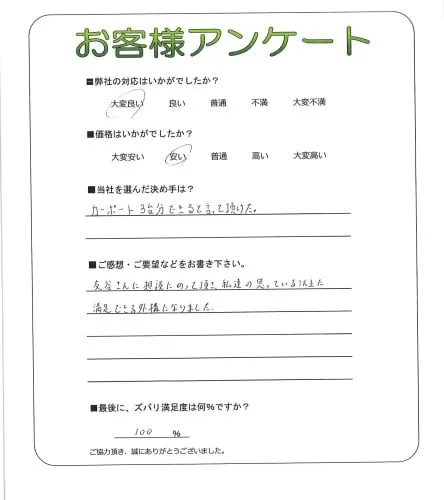 お客様アンケート
■弊社の対応はいかがでしたか？
大変良い 良い 普通 不満 大変不満
■価格はいかがでしたか？
大変安い 安い 普通 高い 大変高い
■当社を選んだ決め手は？
カーポート3台分できると言って頂けた。
■ご感想・ご要望などをお書き下さい。
友谷さんに相談にのって頂き、私達の思っている以上に
満足できる外構になりました。
■最後に、ズバリ満足度は何%ですか？
100 %
ご協力頂き、誠にありがとうございました。